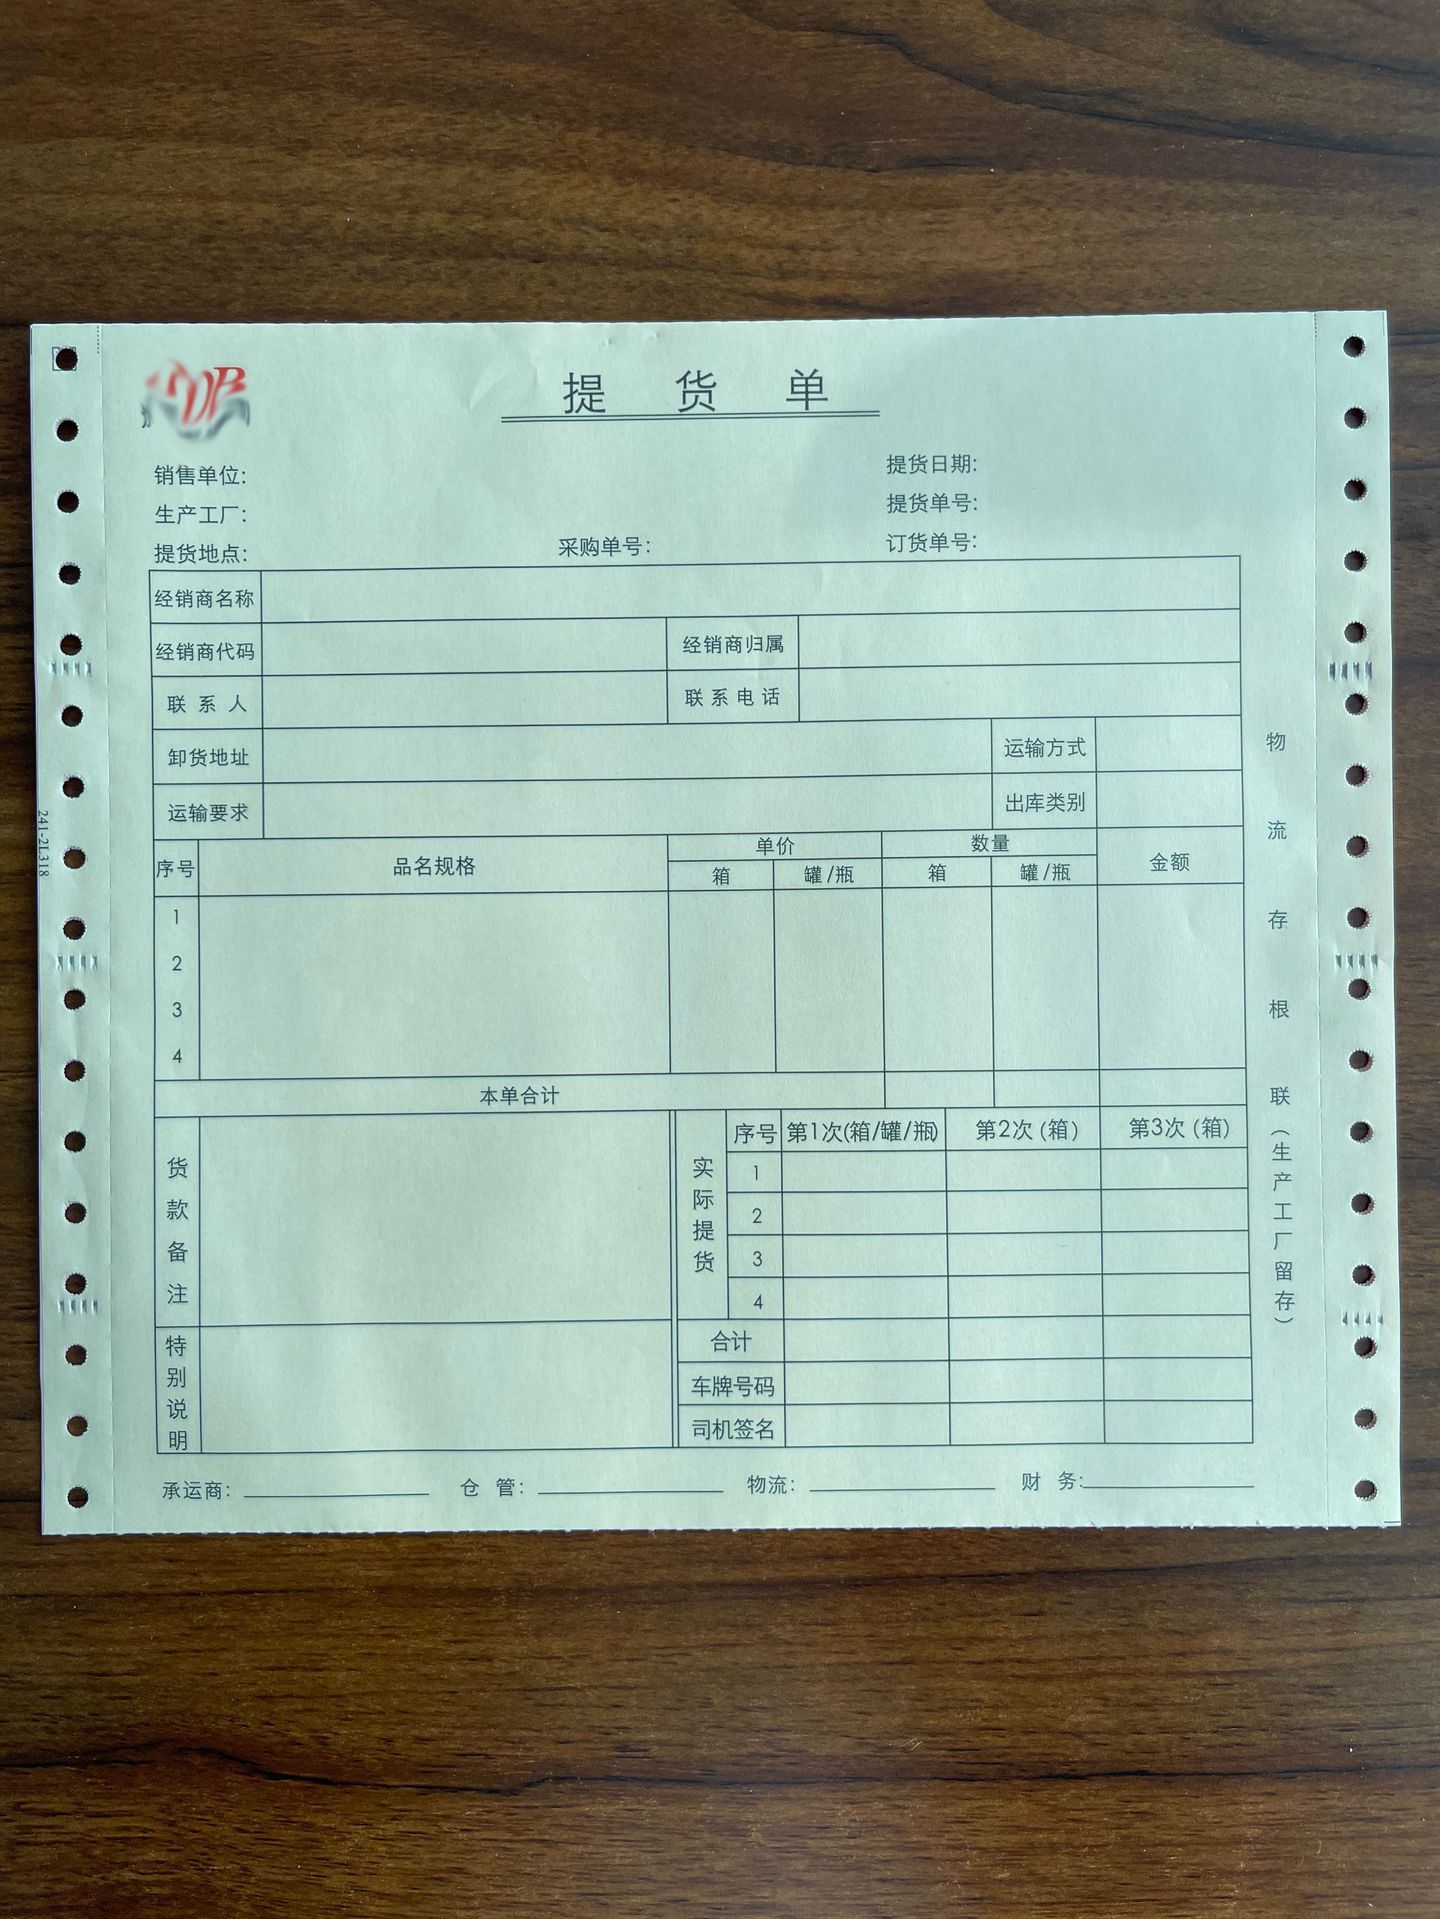 提货单
销售单位:
提货日期:
生产工厂:
提货单号:
提货地点:
采购单号:
订货单号:
经销商名称
经销商代码
经销商归属
联系人
联系电话
卸货地址
运输方式
运输要求
出库类别
序号
品名规格
单价
数量
金额
箱
罐/瓶
箱
罐/瓶
1
2
3
4
本单合计
货款备注
实际提货
序号
第1次(箱/罐/瓶)
第2次(箱)
第3次(箱)
1
2
3
4
特别说明
合计
车牌号码
司机签名
承运商:
仓管:
物流:
财务:
物流存根联(生产工厂留存)
241-2L318